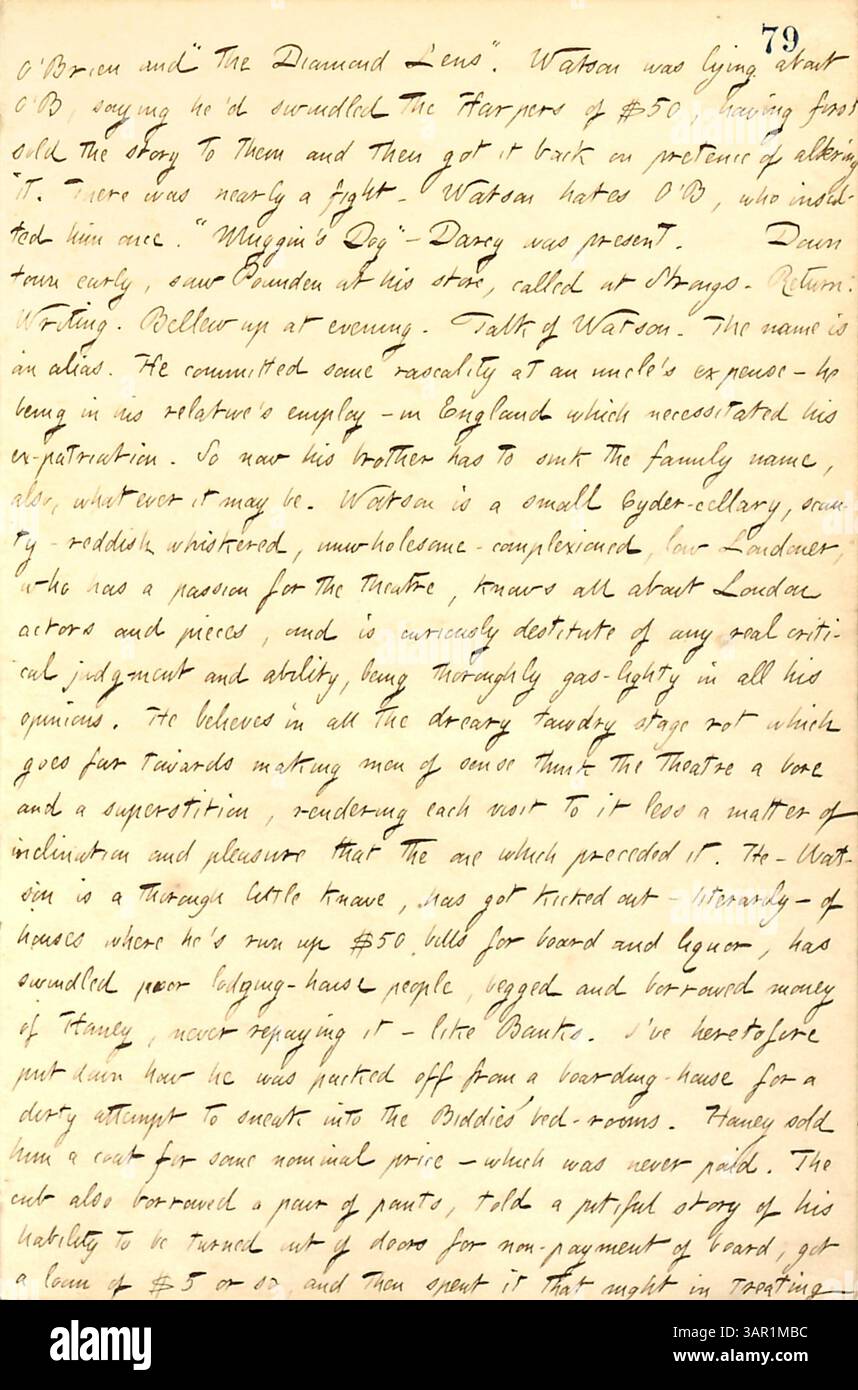 79
O'Brien and "The Diamond Lens". Watson was lying about
O'B, saying he'd swindled the Harpers of $50, having first
sold the story to them and then got it back on pretence of altering
it. There was nearly a fight - Watson hates O'B, who insul-
ted him once. "Muggin's Dog" - Darcy was present. Down
town early, saw Pounden at his store, called at Strongs. Return:
Writing. Bellew up at evening. Talk of Watson. The name is
an alias. He committed some rascality at an uncle's expense - he
being in his relative's employ - in England which necessitated his
ex-patriation. So now his brother has to sink the family name,
also, whatever it may be. Watson is a small Cyder-cellary, scan-
ty - reddish whiskered, unwholesome - complexioned, low Londoner,
who has a passion for the theatre, knows all about London
actors and pieces, and is curiously destitute of any real criti-
cal judgment and ability, being thoroughly gas-lighty in all his
opinions. He believes in all the dreary tawdry stage rot which
goes far towards making men of sense think the theatre a bore
and a superstition, rendering each visit to it less a matter of
inclination and pleasure that the one which preceded it. He - Wat-
son is a thorough little knave, has got kicked out - literardy - of
houses where he's run up $50 bills for board and liquor, has
swindled poor lodging-house people, begged and borrowed money
of Haney, never repaying it - like Banks. I've heretofore
put down how he was packed off from a boarding-house for a
dirty attempt to sneak into the Biddies' bed-rooms. Haney sold
him a coat for some nominal price - which was never paid. The
cub also borrowed a pair of pants, told a pitiful story of his
liability to be turned out of doors for non-payment of board, got
a loan of $5 or so, and then spent it that night in treating
alamy
Image ID: 3AR1MBC
www.alamy.com